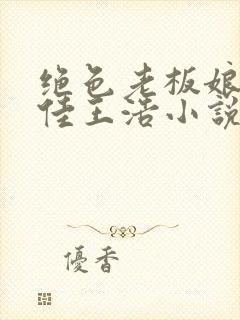 绝色老板娘
佳王浩小说
優香